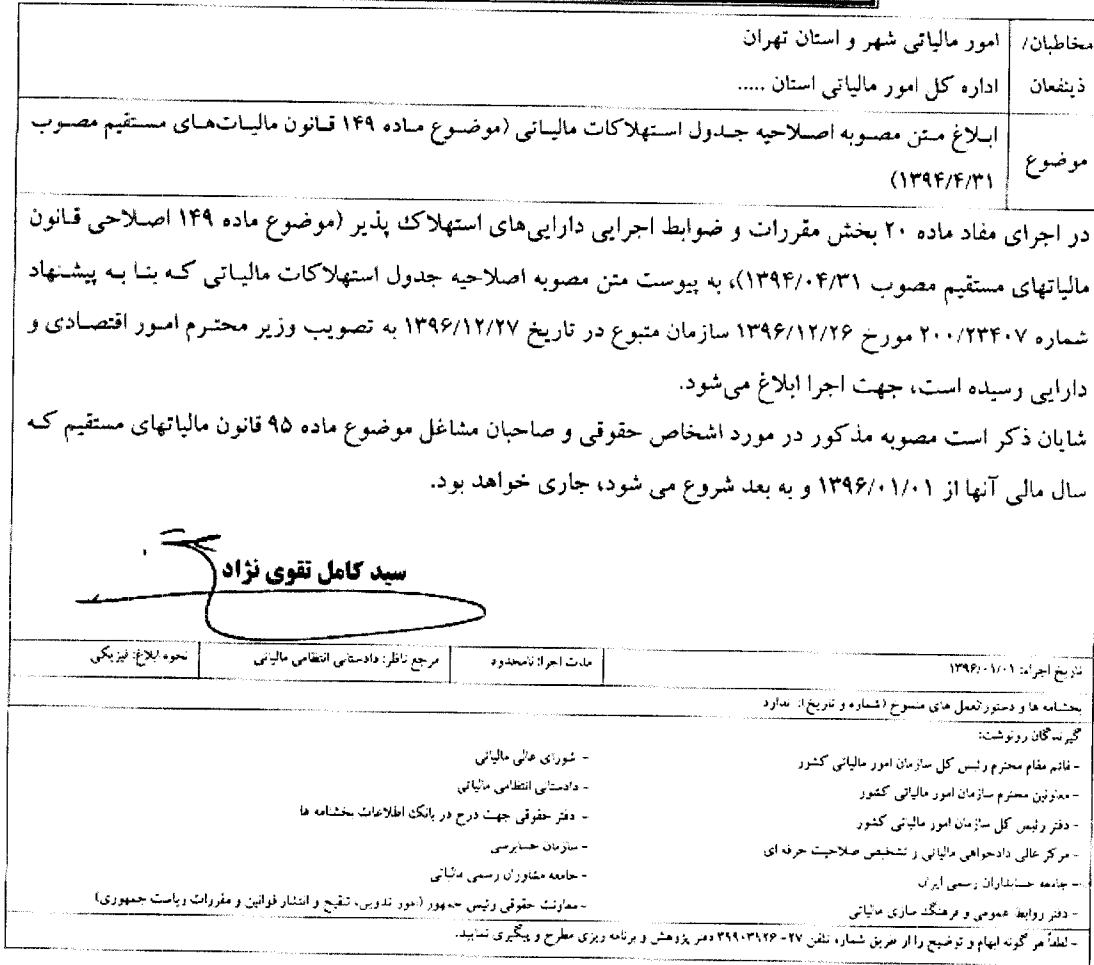 مخاطبان/ امور مالیاتی شهر و استان تهران
ذینفعان اداره کل امور مالیاتی استان .....
موضوع ابلاغ متن مصوبه اصلاحیه جدول استهلاکات مالیاتی (موضوع ماده ۱۴۹ قانون مالیات‌های مستقیم مصوب
۱۳۹۴/۴/۳۱)
در اجرای مفاد ماده ۲۰ بخش مقررات و ضوابط اجرایی دارایی‌های استهلاک پذیر (موضوع ماده ۱۴۹ اصلاحی قانون
مالیاتهای مستقیم مصوب ۱۳۹۴/۰۴/۳۱)، به پیوست متن مصوبه اصلاحیه جدول استهلاکات مالیاتی که بنا به پیشنهاد
شماره ۲۰۰/۲۳۴۰۷ مورخ ۱۳۹۶/۱۲/۲۶ سازمان متبوع در تاریخ ۱۳۹۶/۱۲/۲۷ به تصویب وزیر محترم امور اقتصادی و
دارایی رسیده است، جهت اجرا ابلاغ می‌شود.
شایان ذکر است مصوبه مذکور در مورد اشخاص حقوقی و صاحبان مشاغل موضوع ماده ۹۵ قانون مالیاتهای مستقیم که
سال مالی آنها از ۱۳۹۶/۰۱/۰۱ و به بعد شروع می شود، جاری خواهد بود.
سید کامل تقوی نژاد
تاریخ اجراء: ۱۳۹۶/۰۱/۰۱ مدت اجرا: نامحدود مرجع ناظر: دادستانی انتظامی مالیاتی نحوه ابلاغ: فیزیکی
بخشنامه ها و دستورالعمل های منسوخ (شماره و تاریخ): ندارد
گیرندگان رونوشت:
- قائم مقام محترم رئیس کل سازمان امور مالیاتی کشور - شورای عالی مالیاتی
- معاونین محترم سازمان امور مالیاتی کشور - دادستانی انتظامی مالیاتی
- دفتر رئیس کل سازمان امور مالیاتی کشور - دفتر حقوقی جهت درج در بانک اطلاعات بخشنامه ها
- مرکز عالی دادخواهی مالیاتی و تشخیص صلاحیت حرفه ای - سازمان حسابرسی
- جامعه حسابداران رسمی ایران - جامعه مشاوران رسمی مالیاتی
- دفتر روابط عمومی و فرهنگ سازی مالیاتی - معاونت حقوقی رئیس جمهور (امور تدوین، تنقیح و انتشار قوانین و مقررات ریاست جمهوری)
- لطفاً هر گونه ابهام و توضیح را از طریق شماره تلفن ۲۷-۳۹۹۰۳۹۲۶ دفتر پژوهش و برنامه ریزی مطرح و پیگیری نمایید.